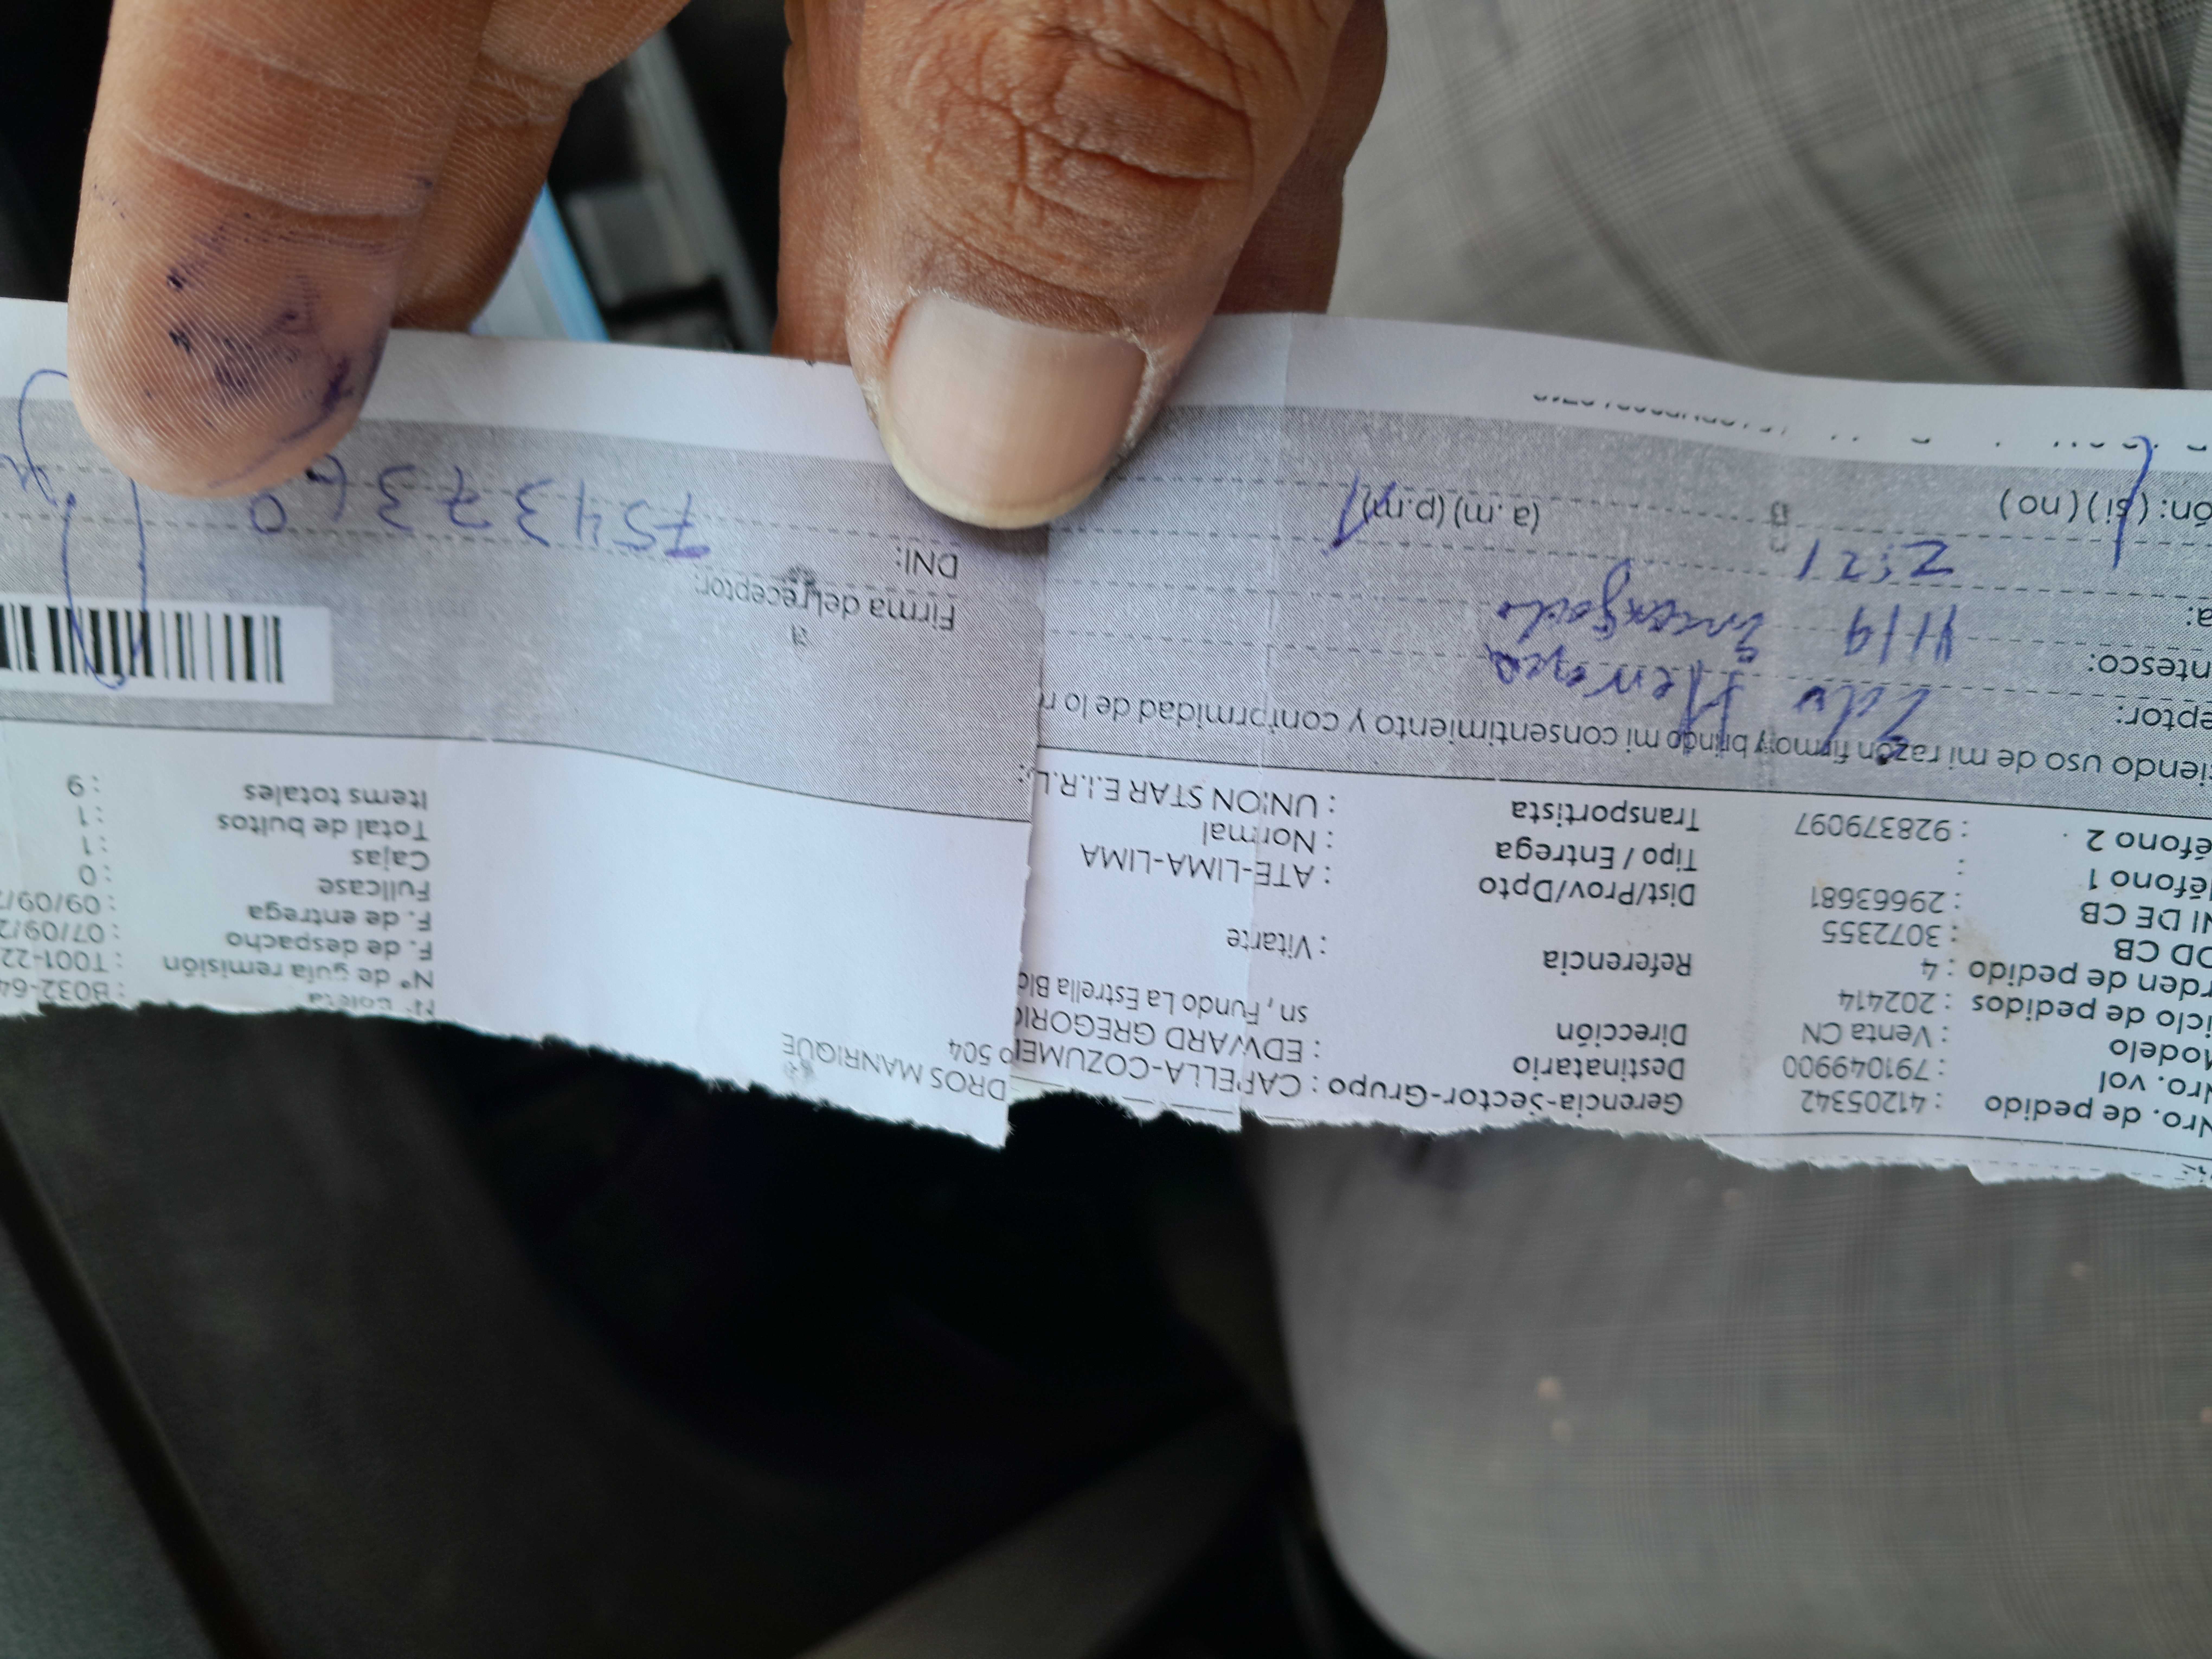 Nro. de pedido : 41205342 Gerencia-Sector-Grupo : CAPELLA-COZUMEL 504
Nro. vol : 791049900 Destinatario : EDWARD GREGORIO DROS MANRIQUE
Modelo : Venta CN Dirección sn, Fundo La Estrella Blo
iclo de pedidos : 202414
rden de pedido : 4 Referencia : Vitarte
OD CB : 3072355
NI DE CB : 29663681 Dist/Prov/Dpto : ATE-LIMA-LIMA
éfono 1 : Tipo / Entrega : Normal
éfono 2 : 928379097 Transportista : UNION STAR E.I.R.L.
: B032-64
N° de guía remisión : T001-22
F. de despacho : 07/09/2
F. de entrega : 09/09/
Fullcase : 0
Cajas : 1
Total de bultos : 1
Items totales : 9
iendo uso de mi razón firmo y brindo mi consentimiento y conformidad de lo r
eptor: Edu Herrera
ntesco: 11/9 Encargado
a: 2:21 (a.m) (p.m)
ón: (si) (no)
Firma del receptor:
DNI: 75437360